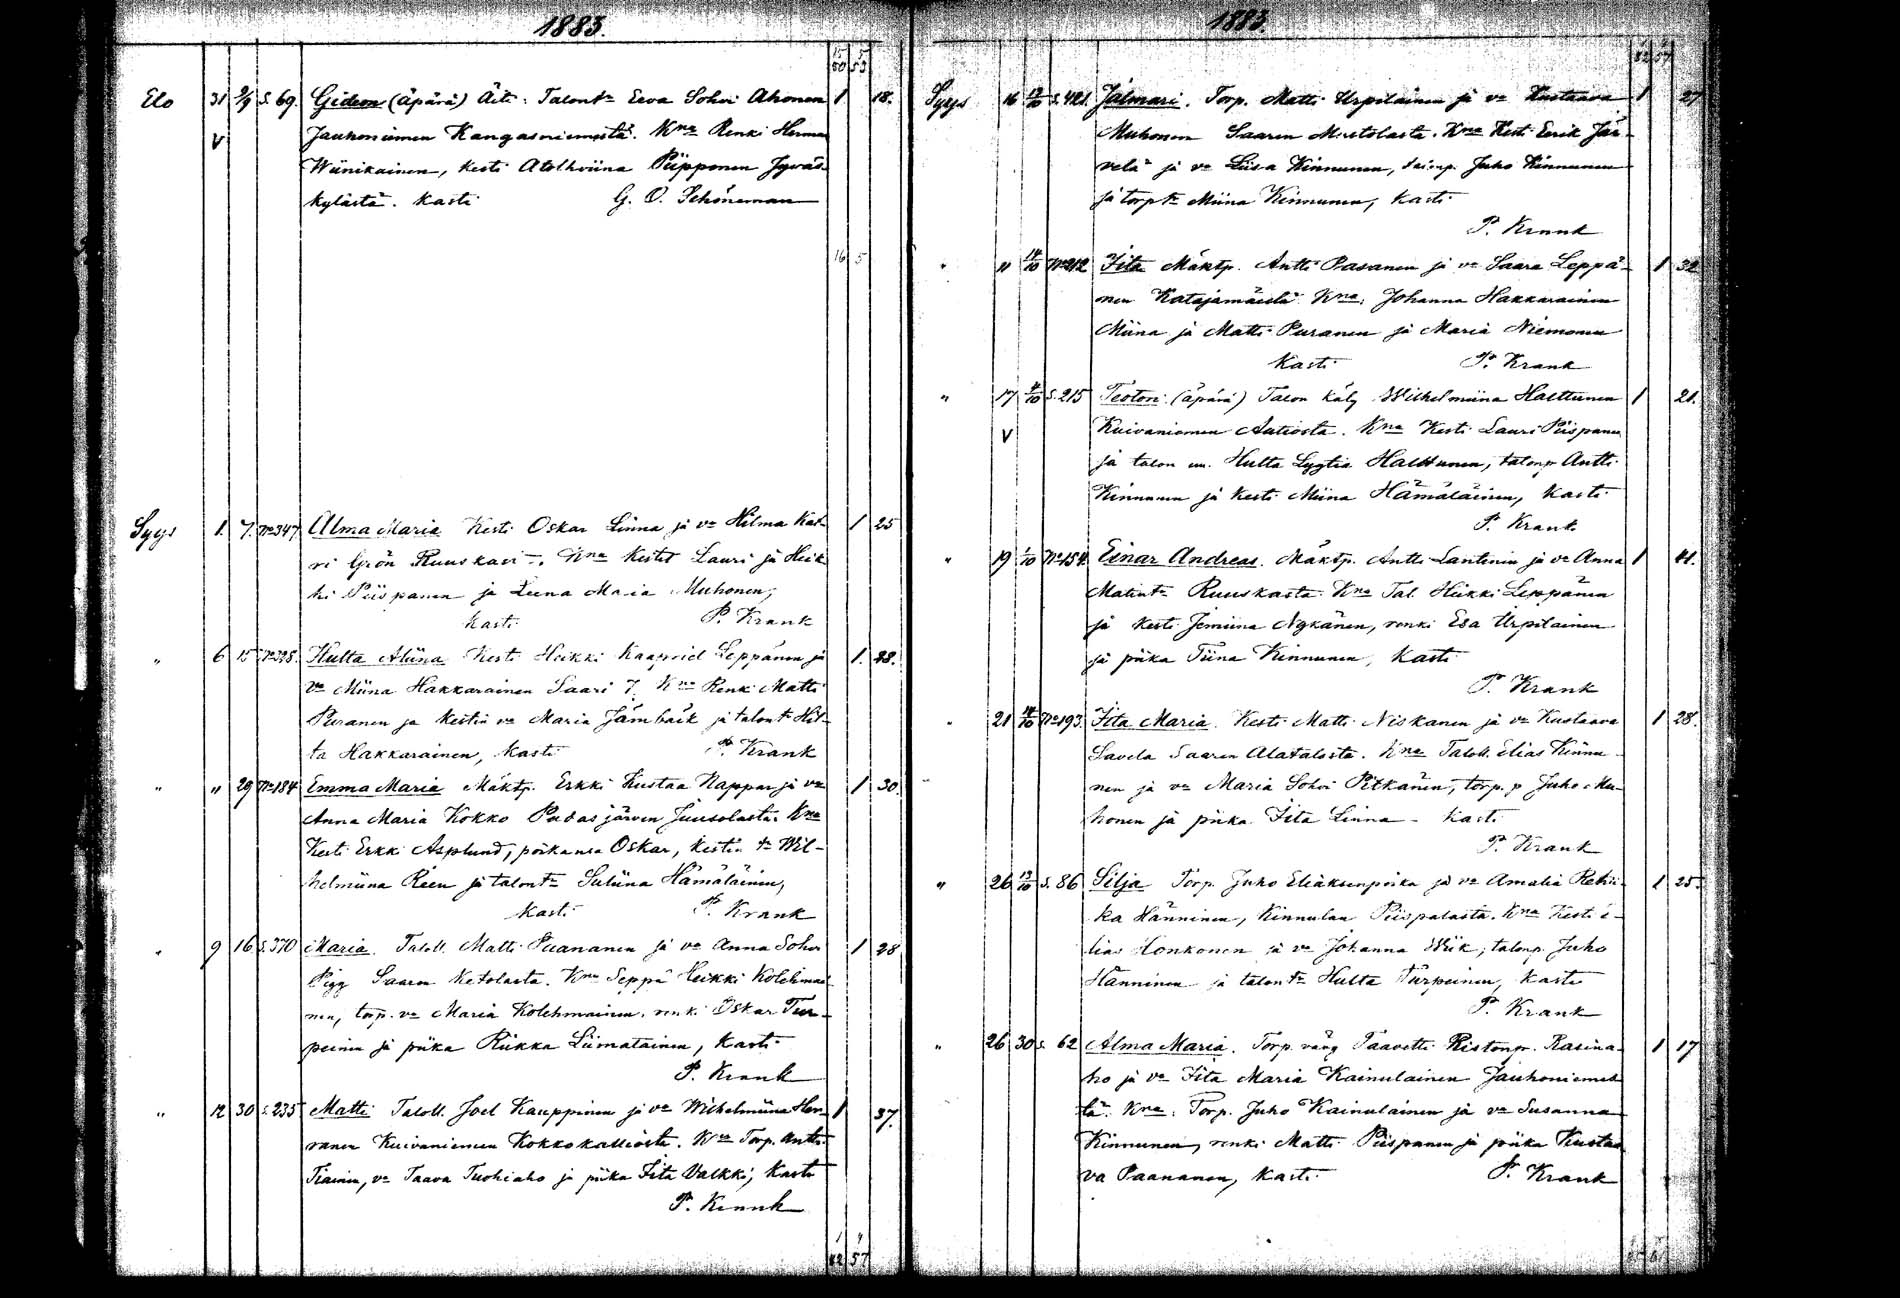 1883.
15 5
50 53
Elo 31 2/9 S. 69. Gideon (äpärä) Äiti: Talont:r Eeva Sohvi Ahonen 1 18.
V Jauhoniemen Kangasniemestä. K:na Renki Herman
Wiinikainen, kesti Atolhviina Piipponen Jyväs-
kylästä. Kasti G. O. Schöneman
16 5
Syys 1. 7. N:o 347 Alma Maria Kesti Oskar Linna ja v:o Hilma Kat- 1 25
ri Grön Ruuskasi. K:na Kestit Lauri ja Heik
ki Piispanen ja Leena Maria Muhonen,
Kasti P. Krank
" 6 15 N:o 328. Hulta Aliina Kesti Heikki Kaapriel Leppänen ja 1. 28.
V:o Miina Hakkarainen Saari 7. K:na Renki Matti
Puranen ja Kestin v:o Maria Jämbäck ja talont:r Hil-
ta Hakkarainen, Kasti P. Krank
" " 29 N:o 184 Emma Maria Mäktp. Erkki Kustaa Nappar ja v:o 1 30.
Anna Maria Kokko Padasjärven Juusolasta. K:na
Kesti Erkki Asplund, poikansa Oskar, Kestin t:r Wil-
helmiina Reen ja talont:r Suliina Hämäläinen,
Kasti P. Krank
" 9 16 S. 370 Maria. Taloll. Matti Paananen ja v:o Anna Sohvi 1 28
Pigg Saaren Ketolasta. K:na Seppä Heikki Kolehmai-
nen, torp. v:o Maria Kolehmainen, renki Oskar Tur-
peinen ja piika Riikka Liimatainen, Kasti
P. Krank
" 12 30 S. 235 Matti Taloll. Joel Kauppinen ja v:o Wilhelmiina Her- 1 37.
ranen Kuivaniemen Kokkokalliosta. K:na Torp. Antti
Tiainen, v:o Taava Tuohiaho ja piika Fita Valkki, Kasti
P. Krank
1 4
82 57
1883.
82 57
Syys 16 12/10 S. 421. Jalmari. Torp. Matti Urpilainen ja v:o Kustaava 1 27
Muhonen Saaren Mustolasta. K:na Kest. Eerik Jär-
velä ja v:o Liisa Kinnunen, Juho Kinnunen
ja torp t:r Miina Kinnunen, Kasti
P. Krank
" " 14/10 N:o 212 Fita Mäktp. Antti Pasanen ja v:o Saara Leppä- 1 32
nen Katajamäeltä. K:na: Johanna Hakkarainen
Miina ja Matti Puranen ja Maria Niemonen
Kasti P. Krank
" 17 4/10 S. 215 Teotori (äpärä) Talon käly Wilhelmiina Halttunen 1 21.
V Kuivaniemen Autiosta. K:na Kesti Lauri Piispanen
ja talon em. Hulta Lyytia Halttunen, talonp. Antti
Kinnunen ja Kesti Miina Hämäläinen, Kasti
P. Krank
" 19 1/10 N:o 154 Einar Andreas. Mäktp. Antti Lantinen ja v:o Anna 1 41.
Matint:r Ruuskasta. K:na Tal. Heikki Leppänen
ja Kesti Jemiina Nykänen, renki Esa Urpilainen
ja piika Tiina Kinnunen, Kasti
P. Krank
" 21 14/10 N:o 193. Fita Maria. Kesti Matti Niskanen ja v:o Kustaava 1 28.
Savela Saaren Alatalosta. K:na Taloll. Elias Kinnu-
nen ja v:o Maria Sohvi Pitkänen, torp. p Juho Mu-
honen ja piika Fita Linna. Kasti
P. Krank
" 26 13/10 S. 86 Silja Torp. Juho Eliaksenpoika ja v:o Amalia Retrii- 1 25.
ka Hänninen, Kinnulan Piispalasta. K:na Kesti E-
lias Honkonen ja v:o Johanna Wiik, talonp. Juho
Hänninen ja talont:r Hulta Turpeinen, Kasti
P. Krank
" 26 30 S. 62 Alma Maria. Torp. väng Taavetti Ristonp. Rasina- 1 17
ho ja v:o Fita Maria Kainulainen Jauhoniemes-
tä. K:na: Torp. Juho Kainulainen ja v:o Susanna
Kinnunen, renki Matti Piispanen ja piika Kustaa-
va Paananen, Kasti P. Krank